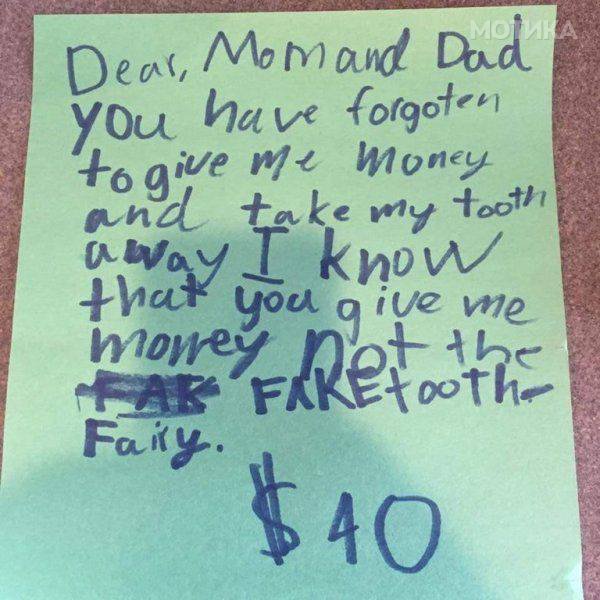 МОТИКА
Dear, Mom and Dad
you have forgoten
to give me money
and take my tooth
away I know
that you give me
money not the
FAK FAKE tooth-
Fairy.
$40